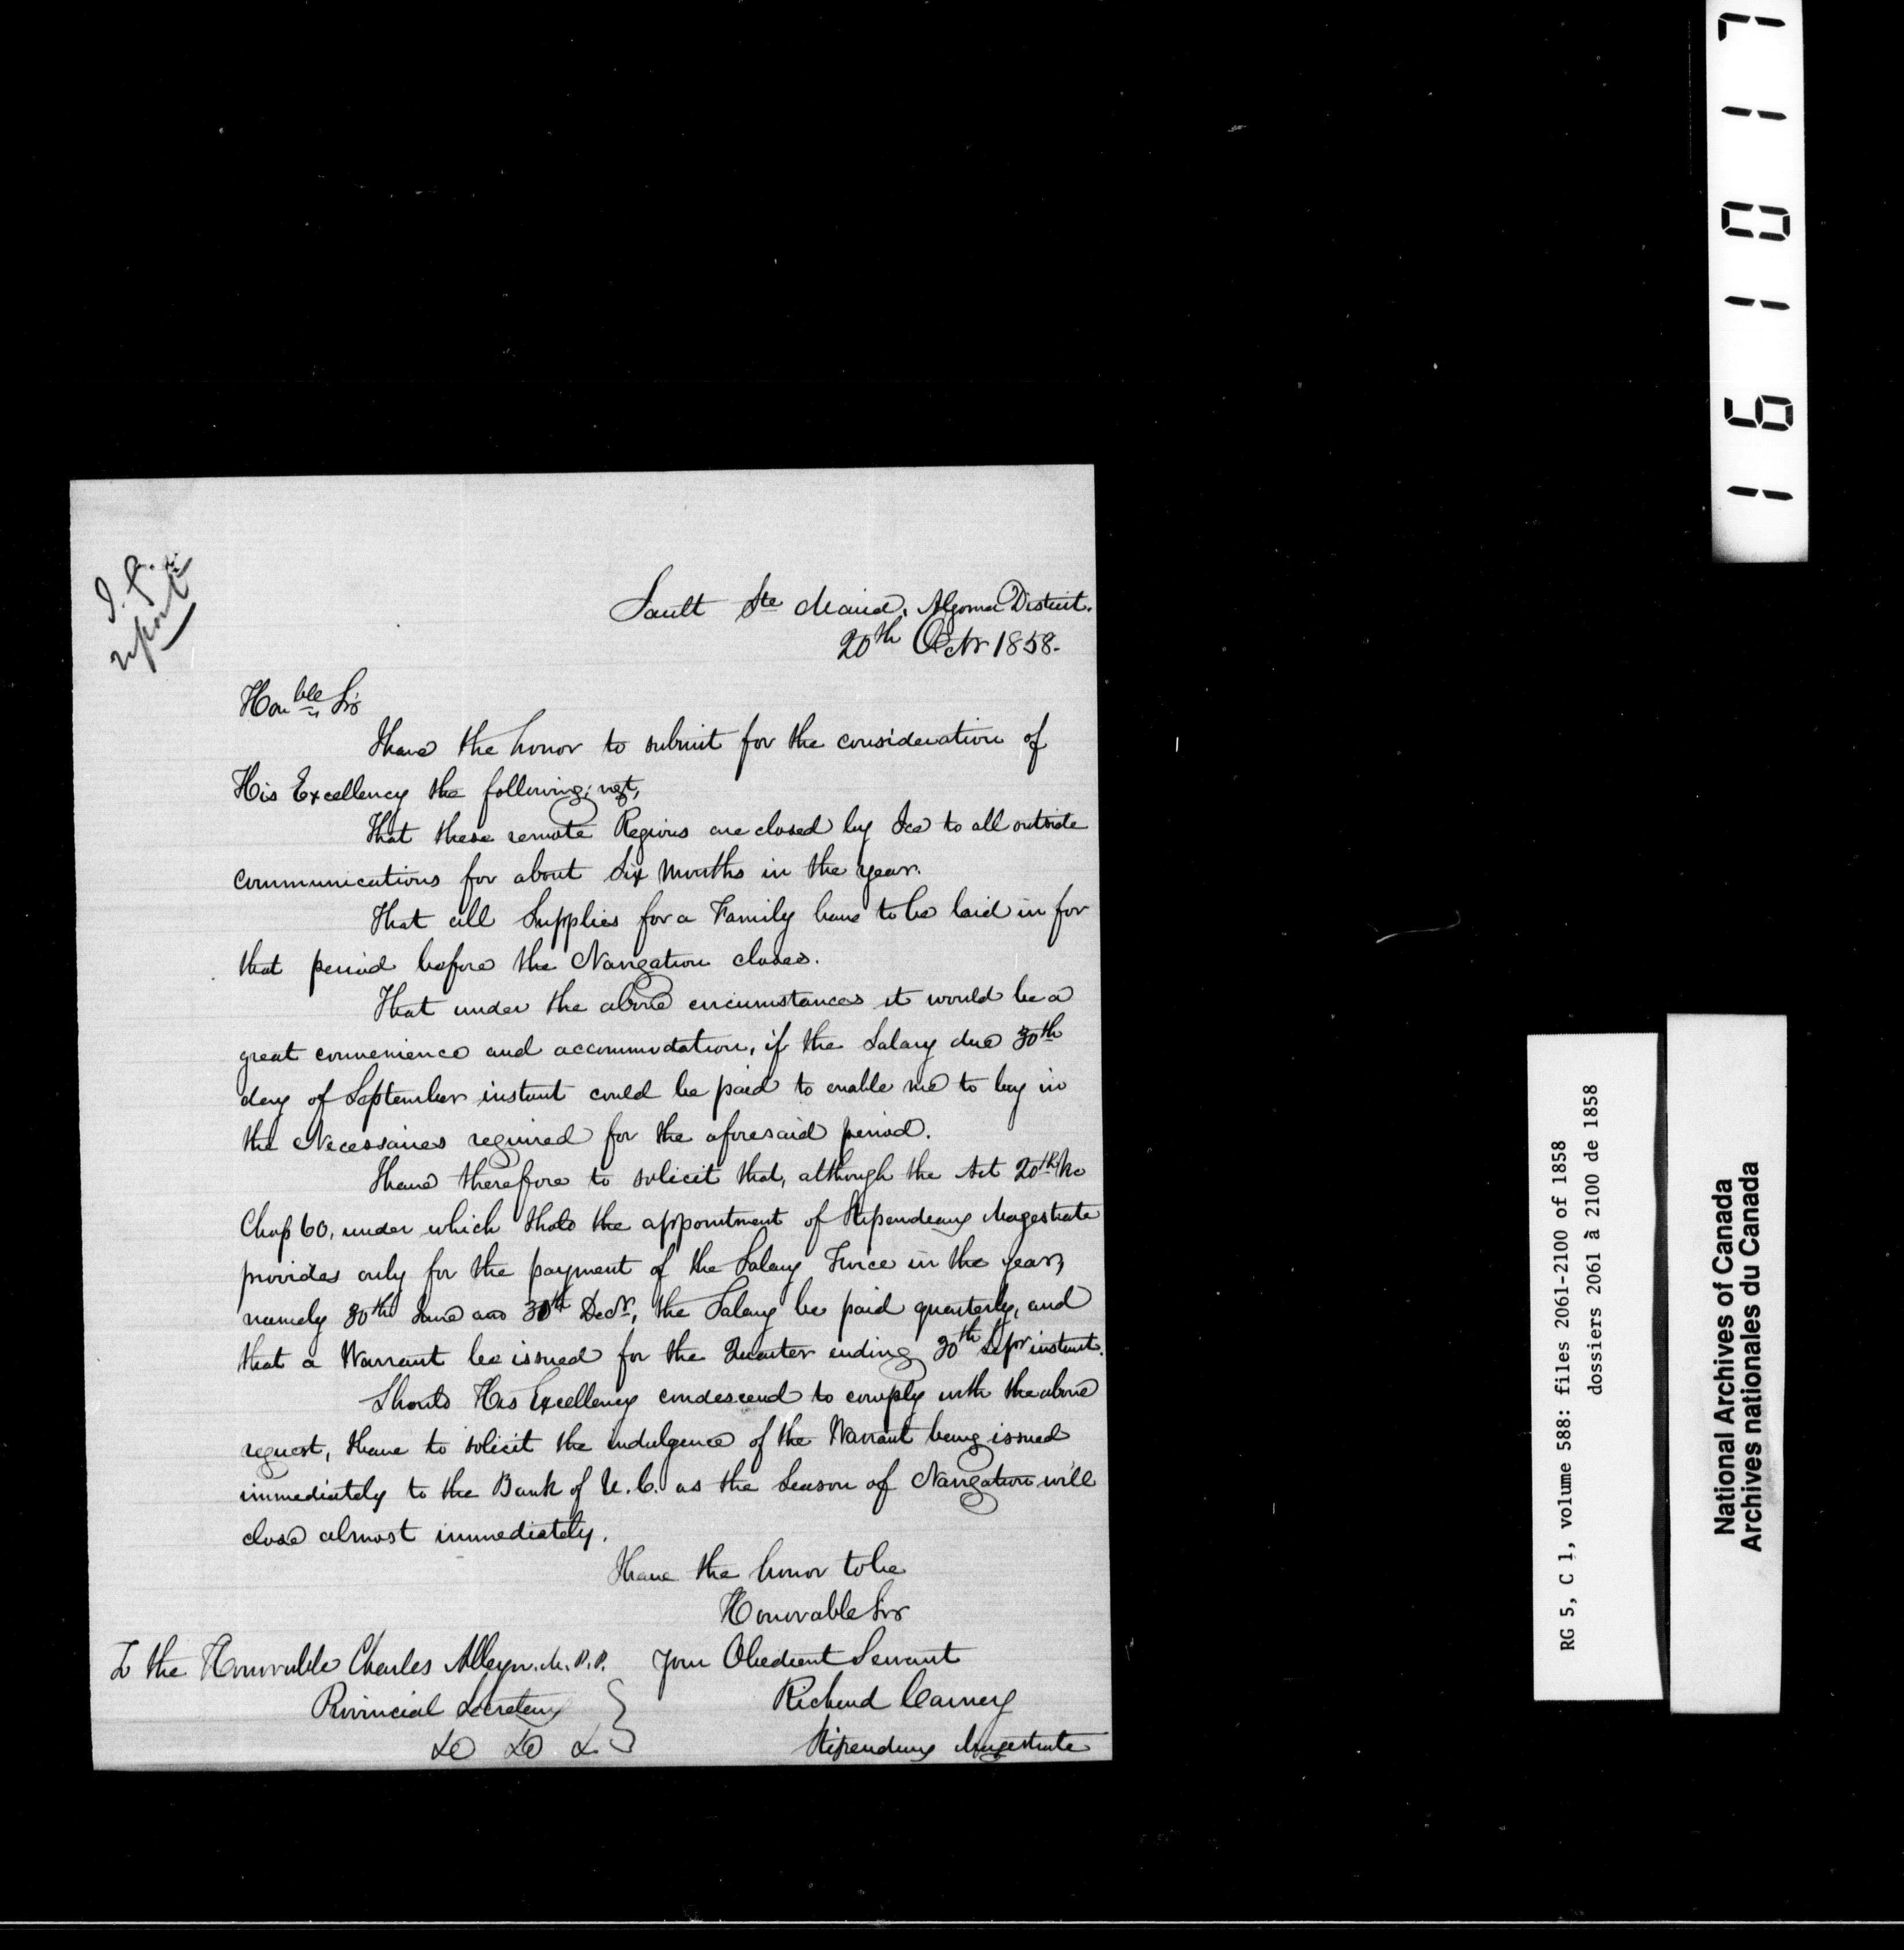 161017
report
Sault Ste Marie, Algoma District.
20th Octr 1858.
Honble Sir
I have the honor to submit for the consideration of
His Excellency the following; vizt,
That these remote Regions are closed by Ice to all outside
communications for about Six Months in the year.
That all Supplies for a Family have to be laid in for
that period before the Navigation closes.
That under the above circumstances it would be a
great convenience and accommodation, if the Salary due 30th
day of September instant could be paid to enable me to lay in
the Necessaries required for the aforesaid period.
I have therefore to solicit that, although the Act 20th Vic
Chap 60, under which I hold the appointment of Stipendiary Magestrate
provides only for the payment of the Salary Twice in the year,
namely 30th June and 30th Decr, the Salary be paid quarterly, and
that a Warrant be issued for the Quarter ending 30th Sepr instant.
Should His Excellency condescend to comply with the above
request, I have to solicit the indulgence of the Warrant being issued
immediately to the Bank of U.C. as the Season of Navigation will
close almost immediately.
I have the honor to be
Honorable Sir
Your Obedient Servant
Richard Carney
Stipendiary Magestrate
To the Honorable Charles Alleyn. M.P.P.
Provincial Secretary
&c &c &c
RG 5, C 1, volume 588: files 2061-2100 of 1858
dossiers 2061 à 2100 de 1858
National Archives of Canada
Archives nationales du Canada